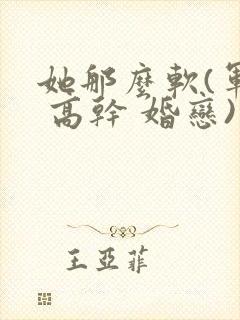 她那麼軟(軍
高幹 婚戀)
王亞菲